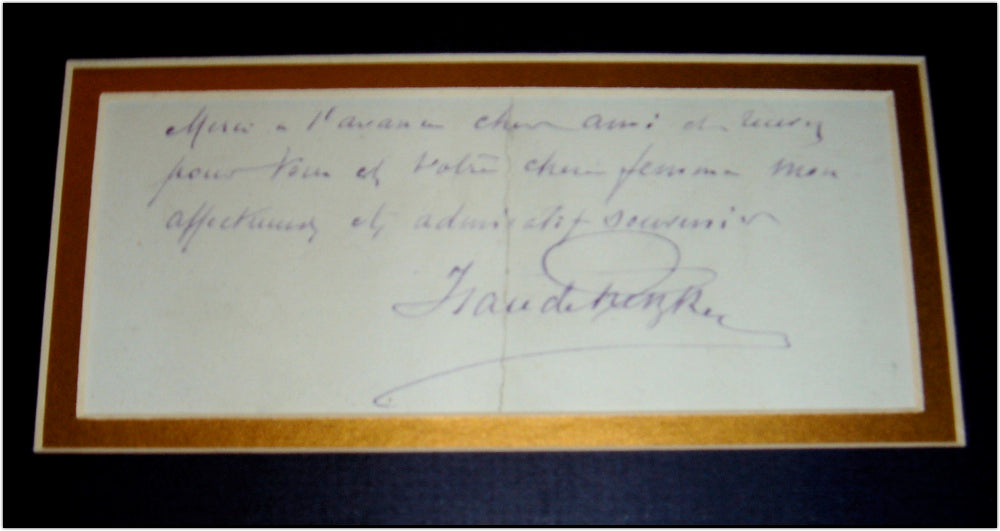 Merci à l'avance cher ami et recevez
pour vous et votre chère femme mon
affectueux et admiratif souvenir
Isaac de